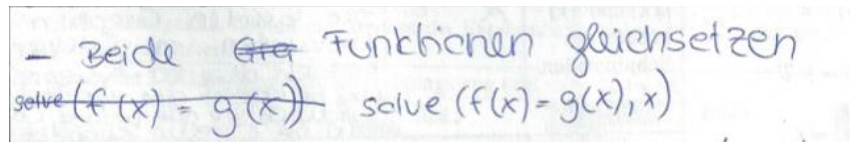 - Beide Funktionen gleichsetzen
solve (f(x) = g(x)) solve (f(x) = g(x), x)